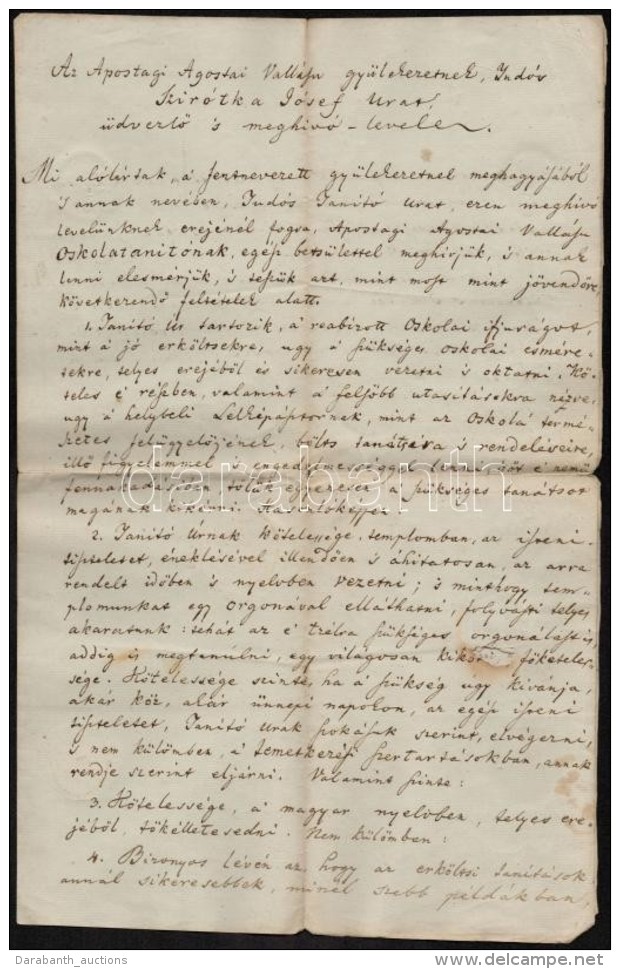 Az Apostagi Agostai Vallásu gyülekezetnek, Tudós
Szirótka Jósef Urat,
üdvezlő 's meghivó-levele.
Mi alólirtak, a' fentnevezett gyülekezetnek meghagyásából
's annak nevében, Tudós Tanitó Urat, ezen meghivó
levelünknek erejénél fogva, Apostagi Agostai Vallásu
Oskolatanitónak, egész betsülettel meghivjuk, 's annak
lenni elesmérjük, 's teszük azt, mint most mint jövendőre,
következendő feltételek alatt.
1. Tanitó Úr tartozik, a' reábizott Oskolai ifjuságot,
mint a' jó erköltsekre, ugy a' szükséges oskolai esmére-
tekre, teljes erejéből és sikeresen vezetni 's oktatni. Kö-
teles e' részben, valamint a' felsőbb utasitásokra nézve,
ugy a' helybeli Lelkipásztornak, mint az Oskola termé-
szetes felügyelőjének, bölts tanátsára 's rendeléseire,
illő figyelemmel 's engedelmességgel lenni, sőt e' nemű
fennakadásiban tőlük egyenesen a' szükséges tanátsot
magának kikérni. Hasonlóképpen
2. Tanitó Úrnak kötelessége, templomban, az isteni-
tiszteletet, éneklésével illendően 's áhitatosan, az arra
rendelt időben 's nyelvben vezetni; 's minthogy tem-
plomunkat egy Orgonával elláthatni, folyvásti teljes
akaratunk: tehát az e' tzélra szükséges orgonálást is,
addig is megtanúlni, egy világosan kikötött főköteles-
sége. Kötelessége szinte, ha a' szükség ugy kivánja,
akár köz, akár ünnepi napokon, az egész isteni
tiszteletet, Tanitó Urak szokásuk szerint, elvégezni,
's nem külömben, a' temetkezési szertartásokban, annak
rendje szerint eljárni. Valamint szinte:
3. Kötelessége, a' magyar nyelvben, teljes ere-
jéből, tökélletesedni. Nem külömben:
4. Bizonyos lévén az, hogy az erköltsi tanitások
annál sikeresebbek, minél szebb példákban,
darabanth
Darabanth_auctions
delcampe.net